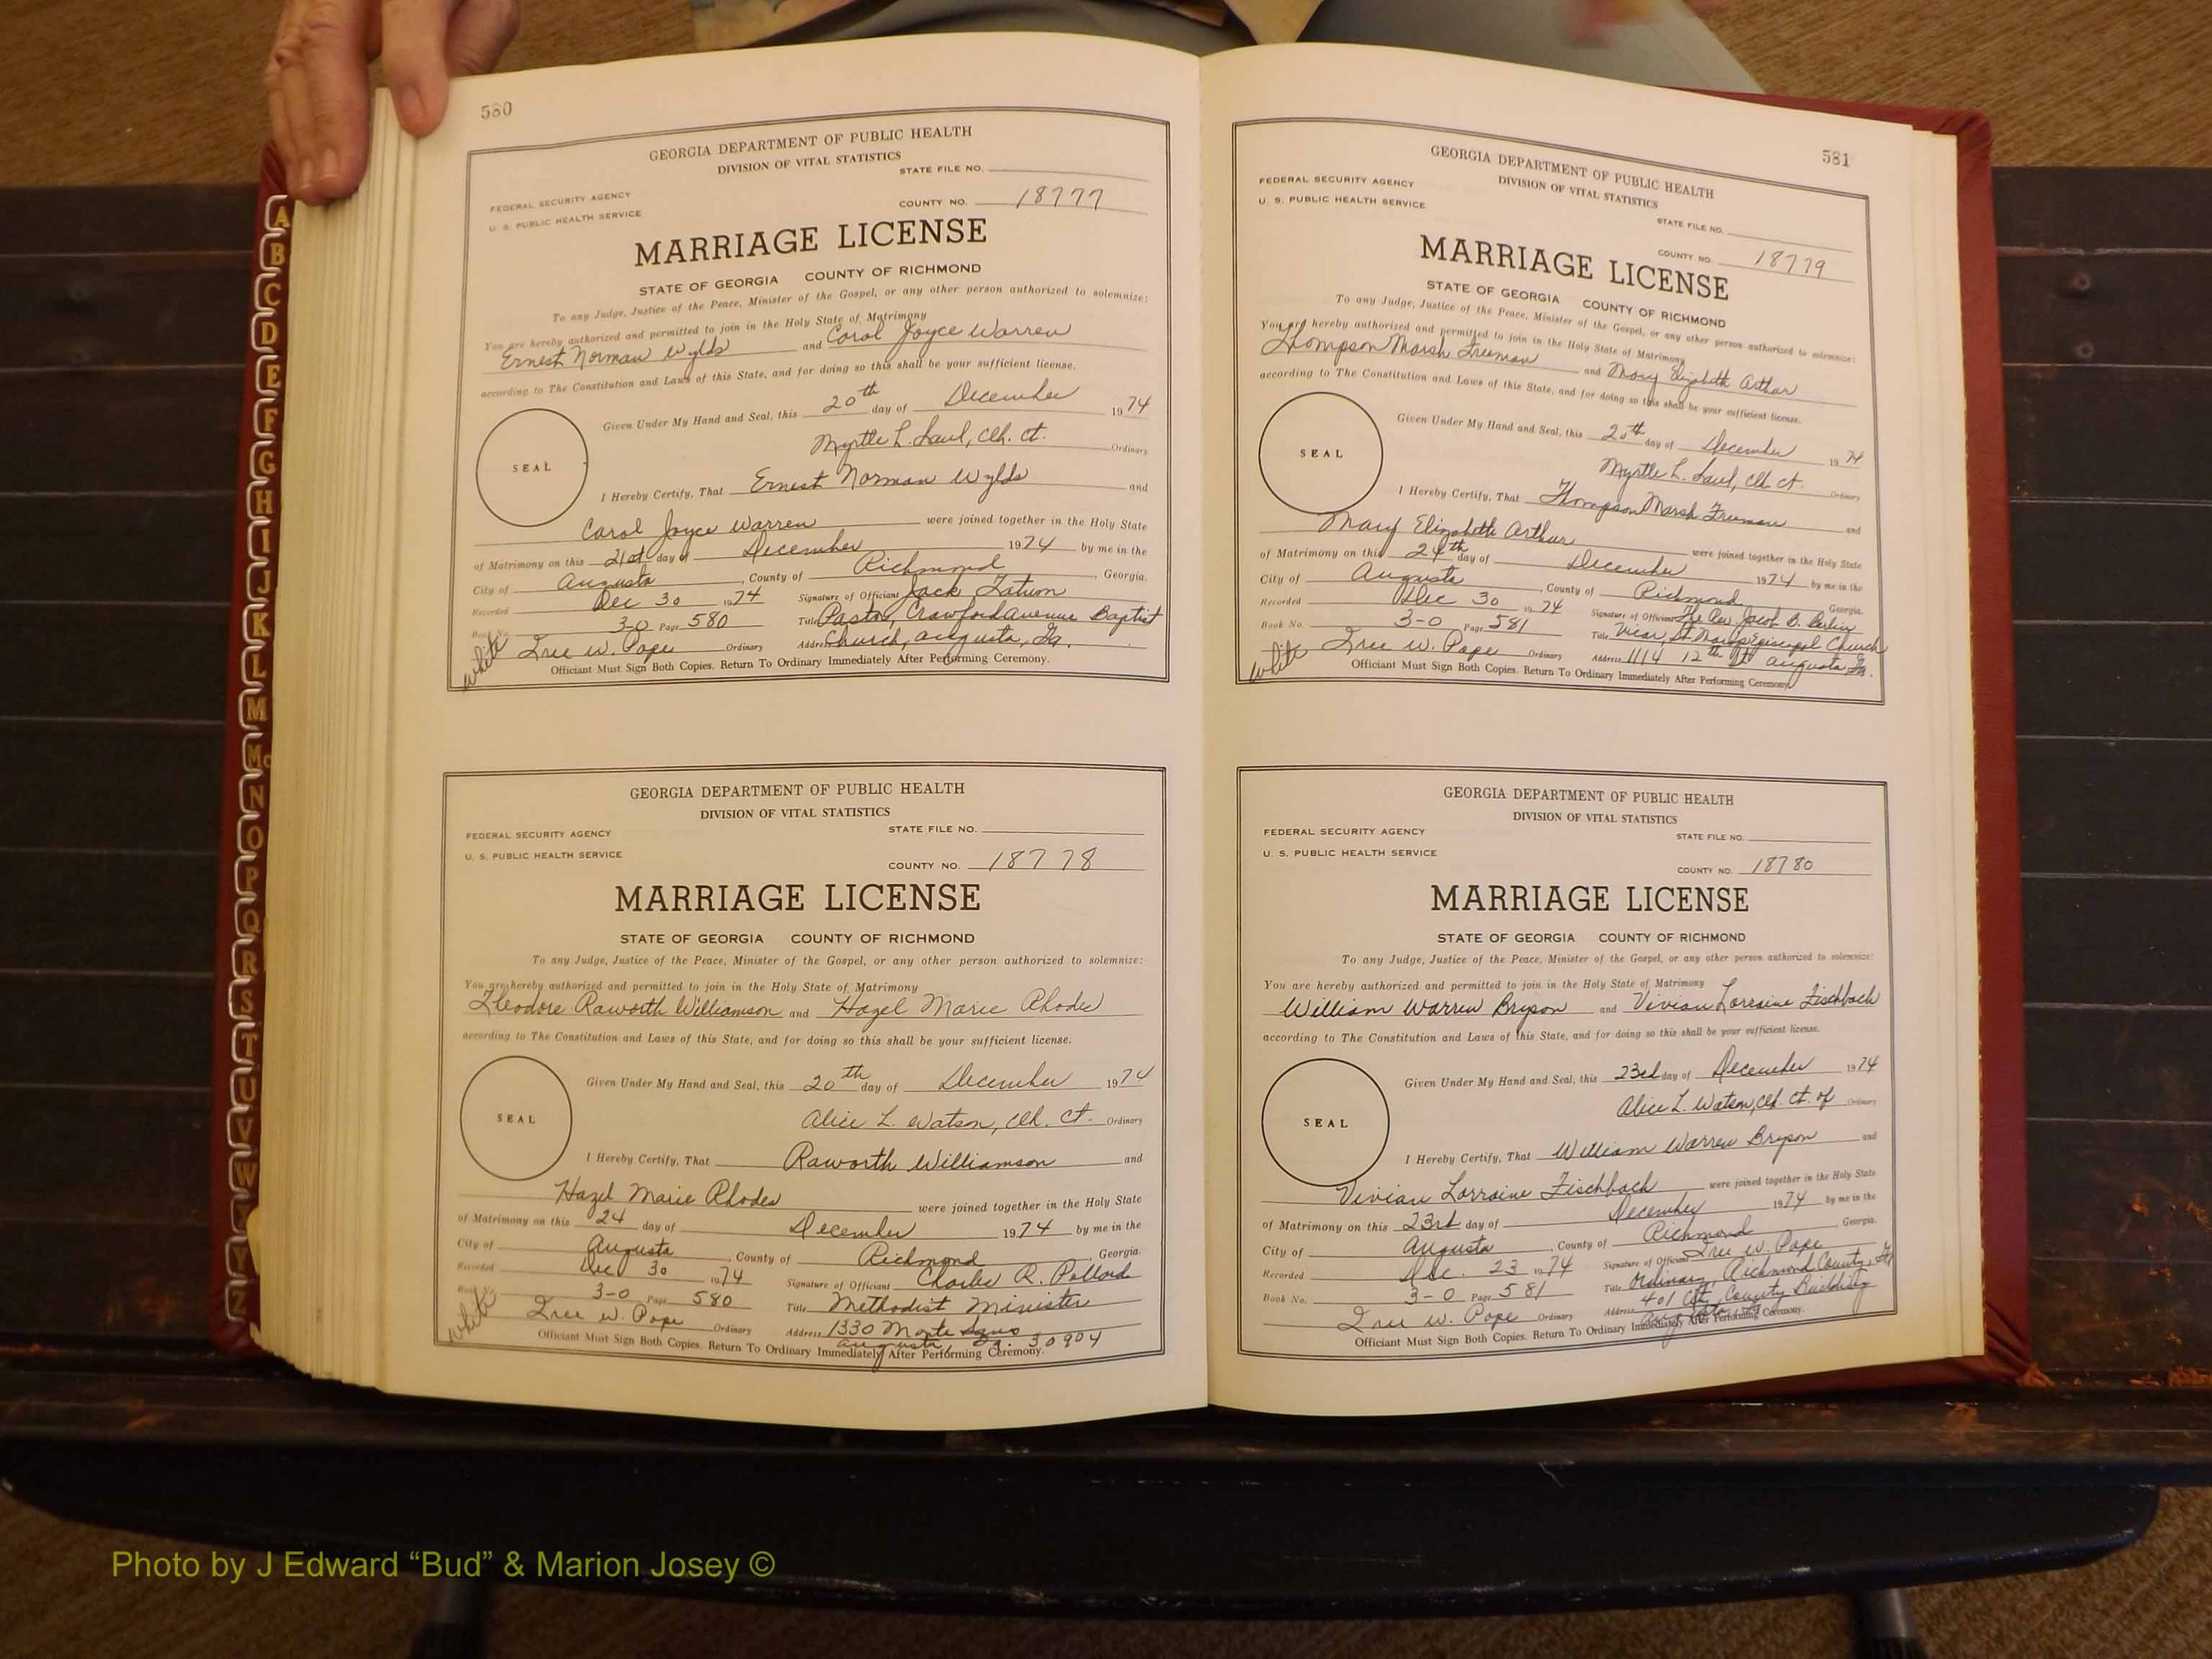 580
GEORGIA DEPARTMENT OF PUBLIC HEALTH
DIVISION OF VITAL STATISTICS
STATE FILE NO.
FEDERAL SECURITY AGENCY
U. S. PUBLIC HEALTH SERVICE
COUNTY NO. 18777
MARRIAGE LICENSE
STATE OF GEORGIA COUNTY OF RICHMOND
To any Judge, Justice of the Peace, Minister of the Gospel, or any other person authorized to solemnize:
You are hereby authorized and permitted to join in the Holy State of Matrimony
Ernest Norman Wylds and Carol Joyce Warren
according to The Constitution and Laws of this State, and for doing so this shall be your sufficient license.
Given Under My Hand and Seal, this 20th day of December 1974
Myrtle L. Saul, Clk. Ct. Ordinary
SEAL
I Hereby Certify, That Ernest Norman Wylds and
Carol Joyce Warren were joined together in the Holy State
of Matrimony on this 21st day of December 1974 by me in the
City of Augusta, County of Richmond, Georgia.
Recorded Dec 30 1974 Signature of Officiant Jack Tatum
Book No. 3-O Page 580 Title Pastor, Crawford Avenue Baptist
White Tree W. Pope Ordinary Address Church, Augusta, Ga.
Officiant Must Sign Both Copies. Return To Ordinary Immediately After Performing Ceremony.
GEORGIA DEPARTMENT OF PUBLIC HEALTH
DIVISION OF VITAL STATISTICS
FEDERAL SECURITY AGENCY
STATE FILE NO.
U. S. PUBLIC HEALTH SERVICE
COUNTY NO. 18778
MARRIAGE LICENSE
STATE OF GEORGIA COUNTY OF RICHMOND
To any Judge, Justice of the Peace, Minister of the Gospel, or any other person authorized to solemnize:
You are hereby authorized and permitted to join in the Holy State of Matrimony
Theodore Raworth Williamson and Hazel Marie Rhodes
according to The Constitution and Laws of this State, and for doing so this shall be your sufficient license.
Given Under My Hand and Seal, this 20th day of December 1974
Alice L. Watson, Clk. Ct. Ordinary
SEAL
I Hereby Certify, That Raworth Williamson and
Hazel Marie Rhodes were joined together in the Holy State
of Matrimony on this 24 day of December 1974 by me in the
City of Augusta, County of Richmond, Georgia.
Recorded Dec 30 1974 Signature of Officiant Charles R. Pollard
Book No. 3-O Page 580 Title Methodist Minister
White Tree W. Pope Ordinary Address 1330 Monte Sano
Augusta, Ga. 30904
Officiant Must Sign Both Copies. Return To Ordinary Immediately After Performing Ceremony.
581
GEORGIA DEPARTMENT OF PUBLIC HEALTH
DIVISION OF VITAL STATISTICS
FEDERAL SECURITY AGENCY
U. S. PUBLIC HEALTH SERVICE
STATE FILE NO.
COUNTY NO. 18779
MARRIAGE LICENSE
STATE OF GEORGIA COUNTY OF RICHMOND
To any Judge, Justice of the Peace, Minister of the Gospel, or any other person authorized to solemnize:
You are hereby authorized and permitted to join in the Holy State of Matrimony
Thompson Marsh Freeman and Mary Elizabeth Arthur
according to The Constitution and Laws of this State, and for doing so this shall be your sufficient license.
Given Under My Hand and Seal, this 20th day of December 1974
Myrtle L. Saul, Clk. Ct. Ordinary
SEAL
I Hereby Certify, That Thompson Marsh Freeman and
Mary Elizabeth Arthur were joined together in the Holy State
of Matrimony on this 24th day of December 1974 by me in the
City of Augusta, County of Richmond Georgia.
Recorded Dec 30 1974 Signature of Officiant The Rev. Jacob B.
Book No. 3-O Page 581 Title Vicar, St Mary's Episcopal Church
White Tree W. Pope Ordinary Address 1114 12th St Augusta Ga.
Officiant Must Sign Both Copies. Return To Ordinary Immediately After Performing Ceremony
GEORGIA DEPARTMENT OF PUBLIC HEALTH
DIVISION OF VITAL STATISTICS
FEDERAL SECURITY AGENCY
STATE FILE NO.
U. S. PUBLIC HEALTH SERVICE
COUNTY NO. 18780
MARRIAGE LICENSE
STATE OF GEORGIA COUNTY OF RICHMOND
To any Judge, Justice of the Peace, Minister of the Gospel, or any other person authorized to solemnize:
You are hereby authorized and permitted to join in the Holy State of Matrimony
William Warren Bryson and Vivian Lorraine Fischbach
according to The Constitution and Laws of this State, and for doing so this shall be your sufficient license.
Given Under My Hand and Seal, this 23rd day of December 1974
Alice L. Watson, Clk. Ct. of Ordinary
SEAL
I Hereby Certify, That William Warren Bryson and
Vivian Lorraine Fischbach were joined together in the Holy State
of Matrimony on this 23rd day of December 1974 by me in the
City of Augusta, County of Richmond Georgia.
Recorded Dec. 23 1974 Signature of Officiant Tree W. Pope
Book No. 3-O Page 581 Title Ordinary, Richmond County, Ga
Tree W. Pope Ordinary Address 401 City, County Building
Augusta, Ga
Officiant Must Sign Both Copies. Return To Ordinary Immediately After Performing Ceremony.
A
B
C
D
E
F
G
H
I
J
K
L
M
Mc
N
O
P
Q
R
S
T
U
V
W
X
Y
Z
Photo by J Edward “Bud” & Marion Josey ©